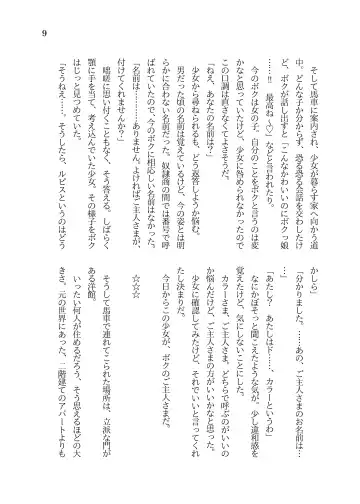 9
そして馬車に案内され、少女が暮らす家へ向かう道
中。どんな子か分からず、恐る恐る会話を交わしたけ
ど、ボクが話し出すと「こんなかわいいのにボクっ娘
……‼　最高ね（♡）」などと言われたり。
今のボクは女の子。自分のことをボクと言うのは変
かなと思っていたけど、少女に咎められなかったので
この口調は直さなくてよさそうだ。
「ねえ、あなたの名前は？」
少女から尋ねられるも、どう返答しようか悩む。
男だった頃の名前は覚えているけど、今の姿とは明
らかに合わない名前だった。奴隷商の間では番号で呼
ばれていたので、今のボクに相応しい名前はなかった。
「名前は………ありません。よければご主人さまが、
付けてくれませんか？」
咄嗟に思い付くこともなく、そう答える。しばらく
顎に手を当て、考え込んでいた少女。その様子をボク
はじっと見つめていた。
「そうねえ……。そうしたら、ルビスというのはどう
かしら」
「分かりました。……あの、ご主人さまのお名前は…
…」
「あたし？　あたしはド……、カラーというわ」
なにかぼそっと聞こえたような気が。少し違和感を
覚えたけど、気にしないことにした。
カラーさま、ご主人さま。どちらで呼ぶのがいいの
か悩んだけど、ご主人さまの方がいいかなと思った。
少女に確認してみたけど、それでいいと言ってくれ
たし決まりだ。
今日からこの少女が、ボクのご主人さまだ。
☆☆☆
そうして馬車で連れてこられた場所は、立派な門が
ある洋館。
いったい何人が住めるだろう、そう思えるほどの大
きさ。元の世界にあった、二階建てのアパートよりも